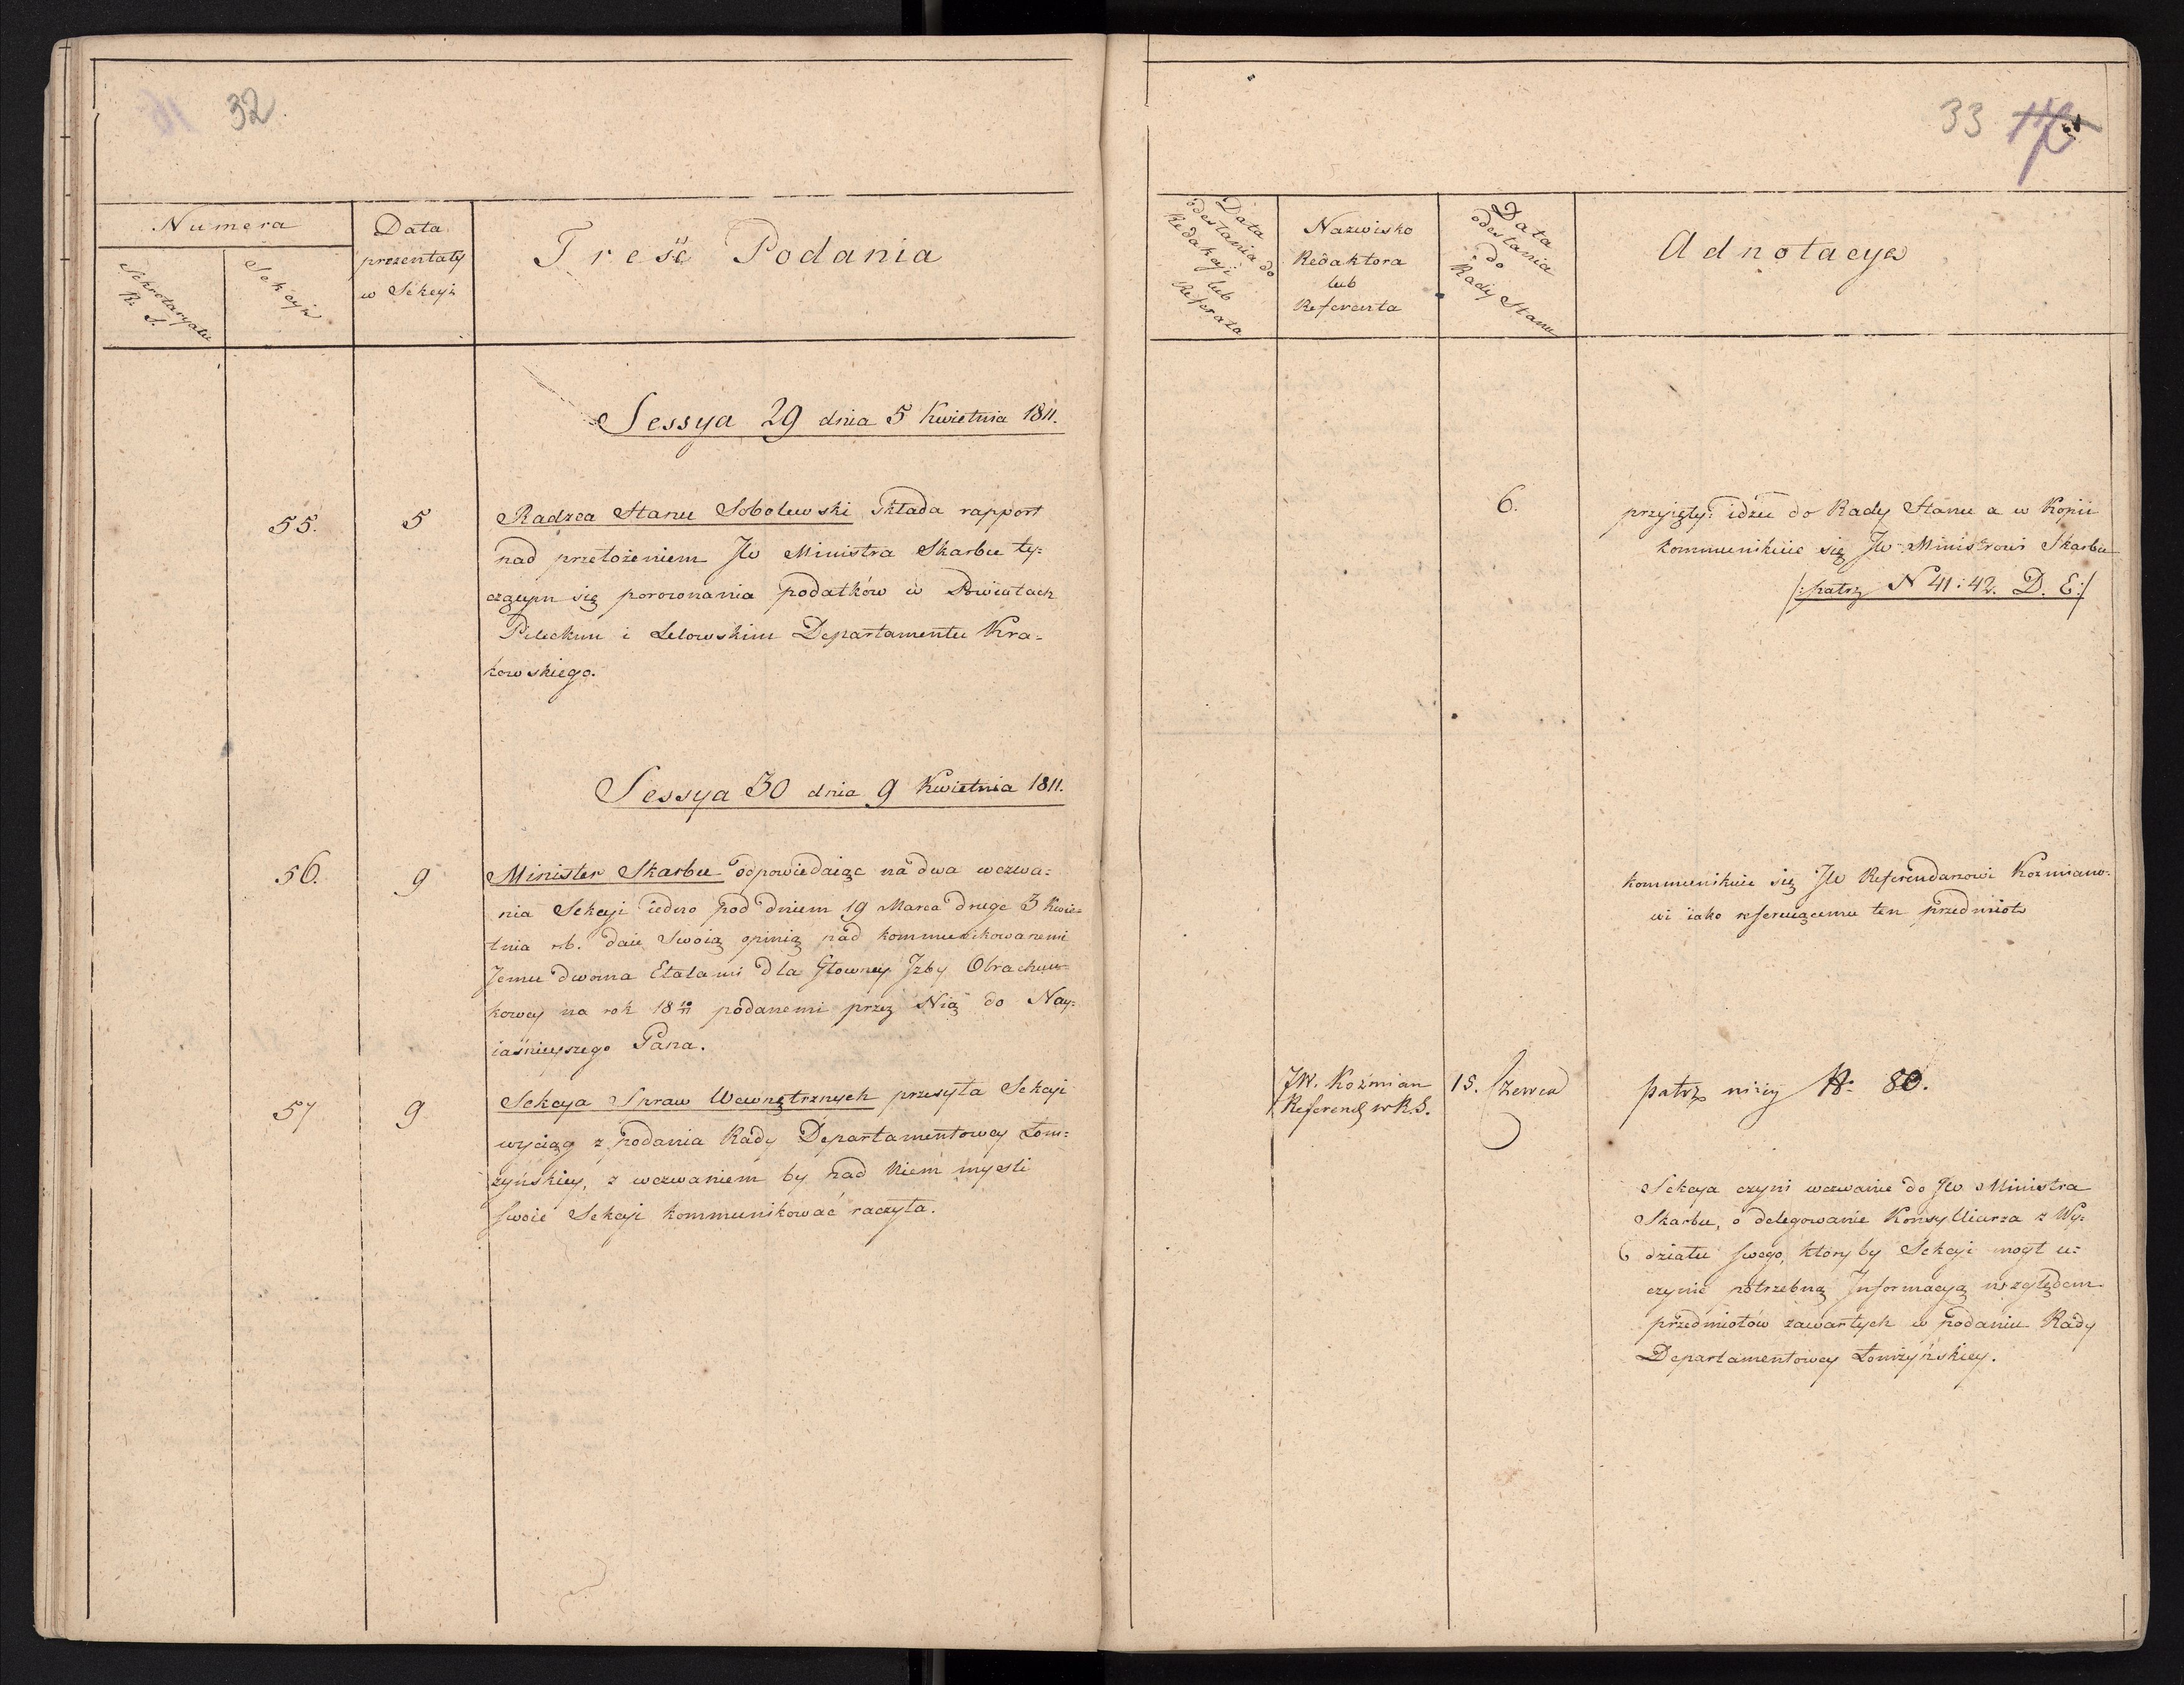 32.
Numera
Sekretaryatu
R. S.
Sekcyi
Data
prezentaty
w Sekcyi
Treść Podania
Sessya 29 dnia 5 Kwietnia 1811.
55.
5
Radzca Stanu Sobolewski składa rapport
nad przełożeniem JW Ministra Skarbu ty=
czącym się porownania podatków w Powiatach
Pileckim i Lelowskim Departamentu Kra=
kowskiego.
Sessya 30 dnia 9 Kwietnia 1811.
56.
9
Minister Skarbu odpowiedaiąc na dwa wezwa=
nia Sekcyi iedno pod dniem 19 Marca drugie 3 Kwie=
tnia r.b. daie Swoią opinią nad kommunikowanemi
Jemu dwoma Etatami dla Głowney Jzby Obrachun=
kowey na rok 18 10/11 podanemi przez Nią do Nay=
iaśnieyszego Pana.
57
9
Sekcya Spraw Wewnętrznych przesyła Sekcyi
wyciąg z podania Rady Departamentowey Łom=
żyńskiey, z wezwaniem by nad Niem mysli
swoie Sekcyi kommunikować raczyła.
33
Data
odesłania do
Redakcyi
lub
Referatu
Nazwisko
Redaktora
lub
Referenta
Data
odesłania
do
Rady Stanu
Adnotacya
6.
przyięty: idzie do Rady Stanu a w Kopii
kommunikuie się JW Ministrowi Skarbu
/: patrz N 41: 42. D. E :/
kommunikuie się JW Referendarzowi Kozmiano=
wi iako referuiącemu ten przedmiot
JW. Koźmian
Referend w R.S.
15. Czerwca
patrz niżey N: 80.
Sekcya czyni wezwanie do JW Ministra
Skarbu, o delegowanie Konsylliarza z Wy=
działu swego, ktory by Sekcyi mogł u=
czynić potrzebną Jnformacyą względem
przedmiotów zawartych w podaniu Rady
Departamentowey Łomżyńskiey.